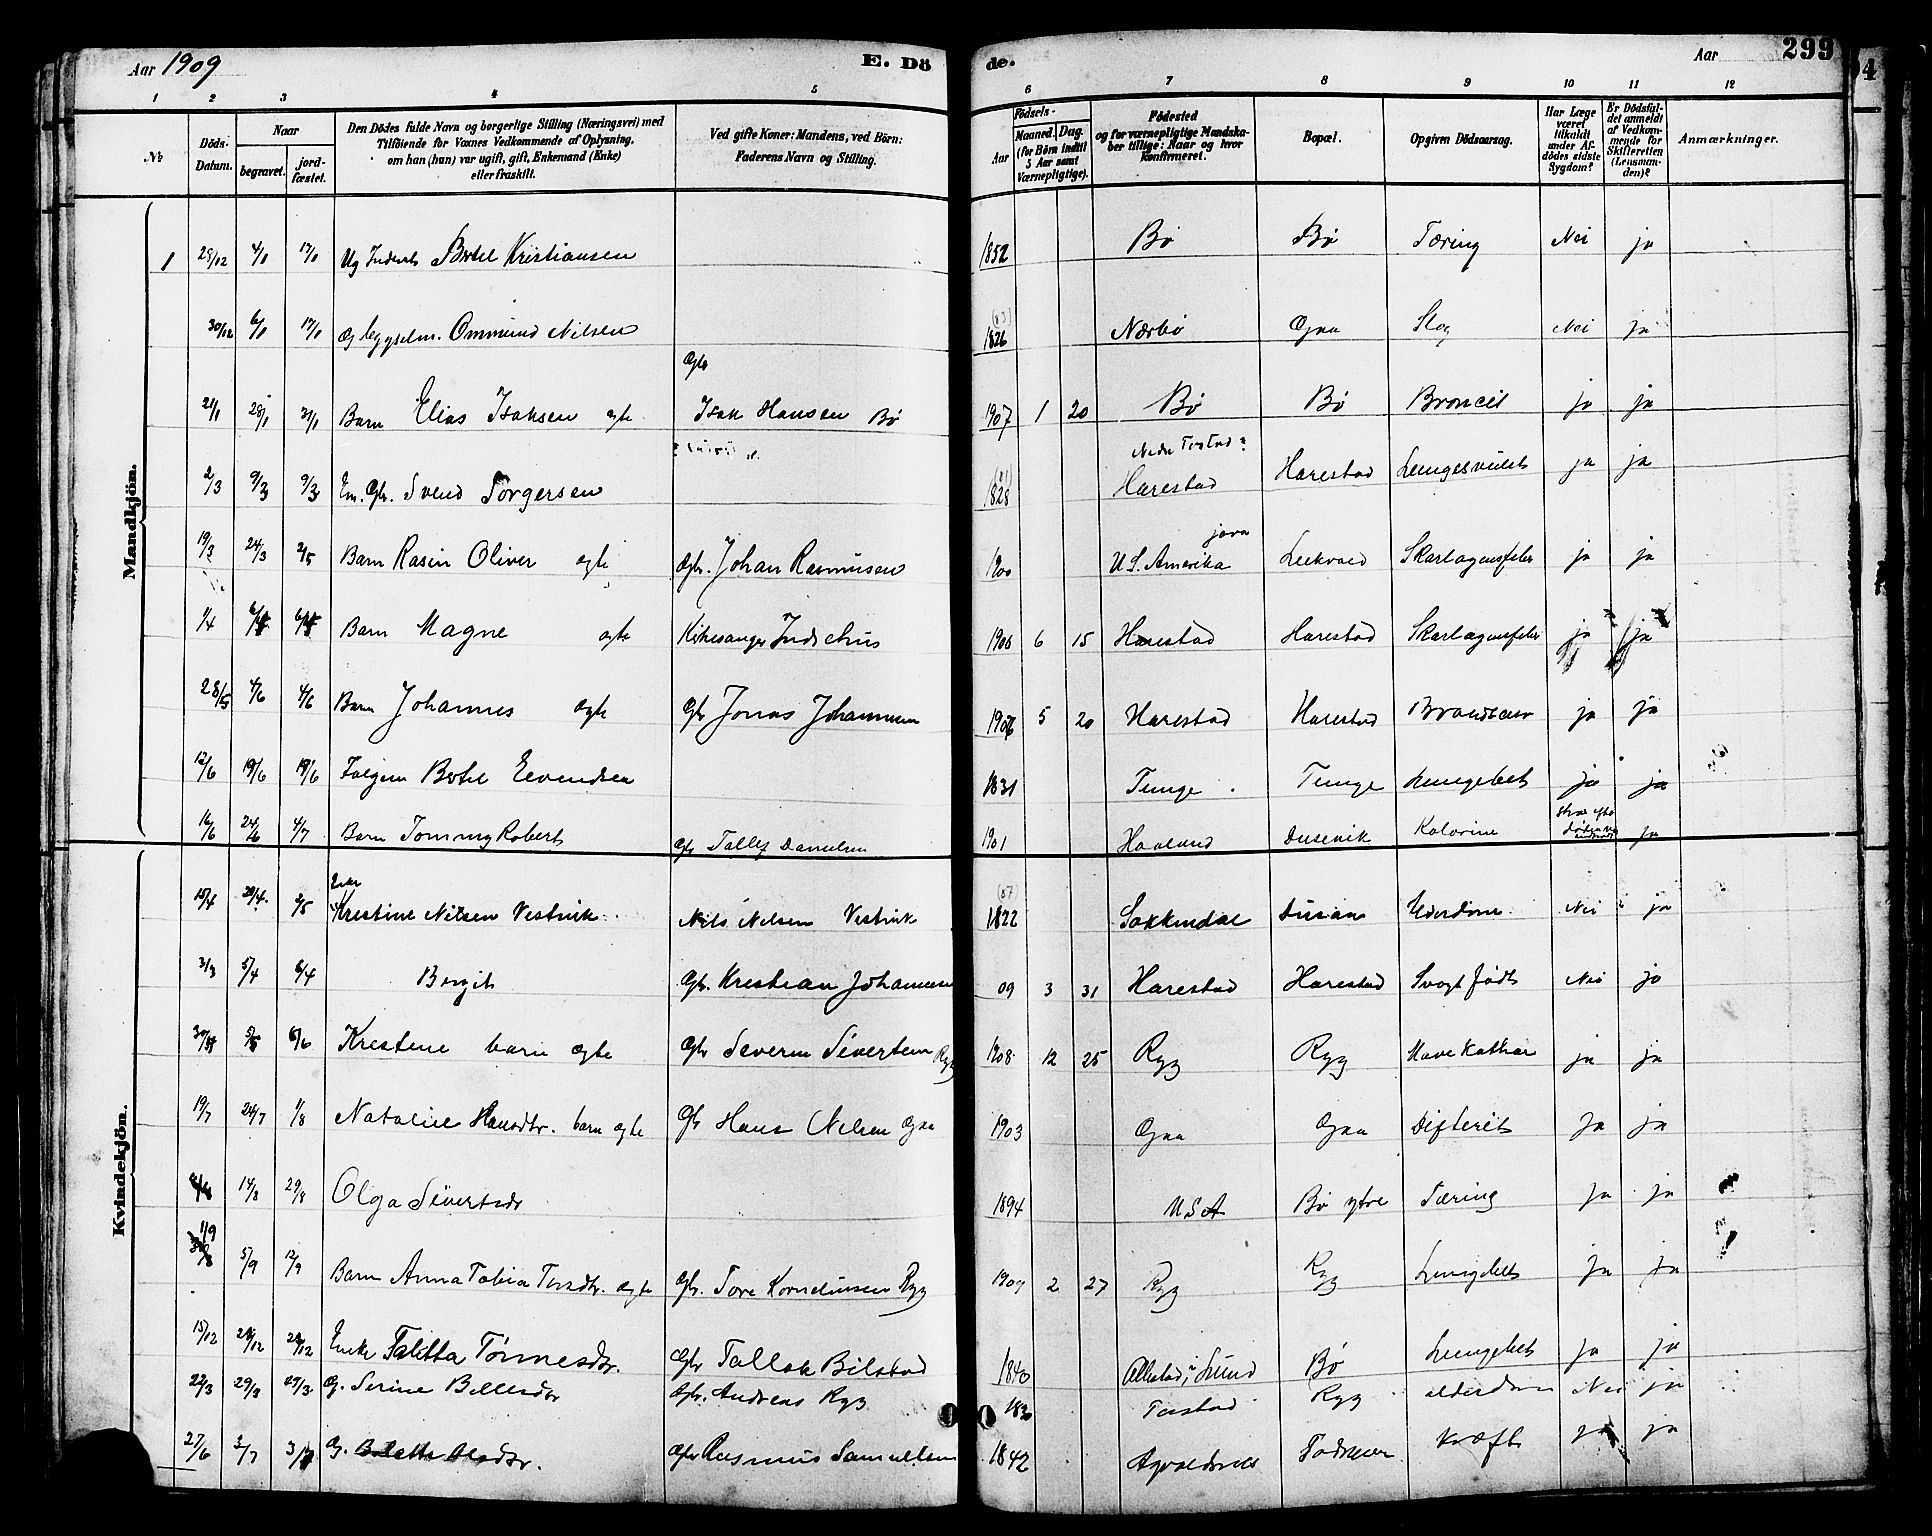 Aar 1909 E. Döde. Aar 299
1 2 3 4 5 6 7 8 9 10 11 12
No
Döds-Datum.
Naar
begravet.
jordfæstet.
Den Dödes fulde Navn og borgerlige Stilling (Næringsvei) med
Tilföiende for Voxnes Vedkommende af Oplysning,
om han (hun) var ugift, gift, Enkemand (Enke)
eller fraskilt.
Ved gifte Koner: Mandens, ved Börn:
Faderens Navn og Stilling.
Födsels-
Aar
Maaned. Dag.
(for Börn indtil
5 Aar samt
Værnepligtige).
Födested
og for værnepligtige Mandska-
ber tillige: Naar og hvor
konfirmeret.
Bopæl.
Opgiven Dödsaarsag.
Har Læge
været
tilkaldt
under Af-
dödes sidste
Sygdom?
Er Dödsfal-
det anmeldt
af Vedkom-
mende for
Skifteretten
(Lensman-
den)?
Anmærkninger.
Mandkjön.
1 28/12 4/1 17/1 Ug Bertel Kristiansen 1852 Bø Bø Tæring Nei ja
30/12 6/1 17/1 Ommund Nilsen (83) 1826 Nærbø Gaa Slag Nei ja
21/1 28/1 31/1 Barn Elias Isaksen ægte Gbr Isak Hansen Bø 1907 1 20 Bø Bø Broncit ja ja
2/3 9/3 9/3 Em. Gbr. Svend Torgersen (81) 1828 Nedre Tastad? Harestad Harestad ja ja
19/3 24/3 2/5 Barn Rasin Oliver ægte Gbr. Johan Rasmussen 1900 U.S. Amerika Leekvold Skarlagensfeber ja ja
1/4 6/4 Barn Magne ægte Kirkesanger 1906 6 15 Harestad Harestad Skarlagensfeber ja ja
28/5 4/6 4/6 Barn Johannes ægte Gbr Jonas Johannesen 1906 5 20 Harestad Harestad ja ja
12/6 19/6 19/6 Bertel Eevendsen 1831 Tunge Tunge Lungebet ja ja
16/6 24/6 4/7 Barn Tommy Robert Gbr Danielsen 1901 Haaland Dusevik Kolerine ja
Kvindekjön.
15/4 20/4 2/5 Enke Krestine Nilsen Vestvik Nils Nilsen Vestvik (87) 1822 Sokkendal Dusan Nei ja
31/3 5/4 6/4 Bergit Gbr. Krestian Johannesen 09 3 31 Harestad Harestad Svagt født Nei ja
5/5 6/6 Krestene barn ægte Gbr Severin Sivertsen Ryg 1908 12 25 Ryg Ryg Mave Kathar ja ja
19/7 24/7 1/8 Natalie Hansdtr. barn ægte Gbr Hans Nilsen Gaa 1903 Gaa Gaa Difterit Ja ja
14/8 29/8 Olga Sivertsdtr 1894 USA Bø ytre Tæring Ja ja
1/9 5/9 12/9 Barn Anna Tobia Torsdtr. ægte Gbr. Tore Korneliussen Ryg 1909 2 27 Ryg Ryg Lungebet Ja ja
15/12 28/12 28/12 Enke Talitta Tønnesdtr. Gbr Tallak Bilstad 1840 Allestad i Lund Bø Lungebet Ja ja
22/3 29/3 29/3 G. Serine Gbr. Andreas Ryg 1830 Tastad Ryg Nei ja
27/6 3/7 3/7 G. Olsdtr. Gbr Rasmus Samuelsen 1842 Kræft ja ja